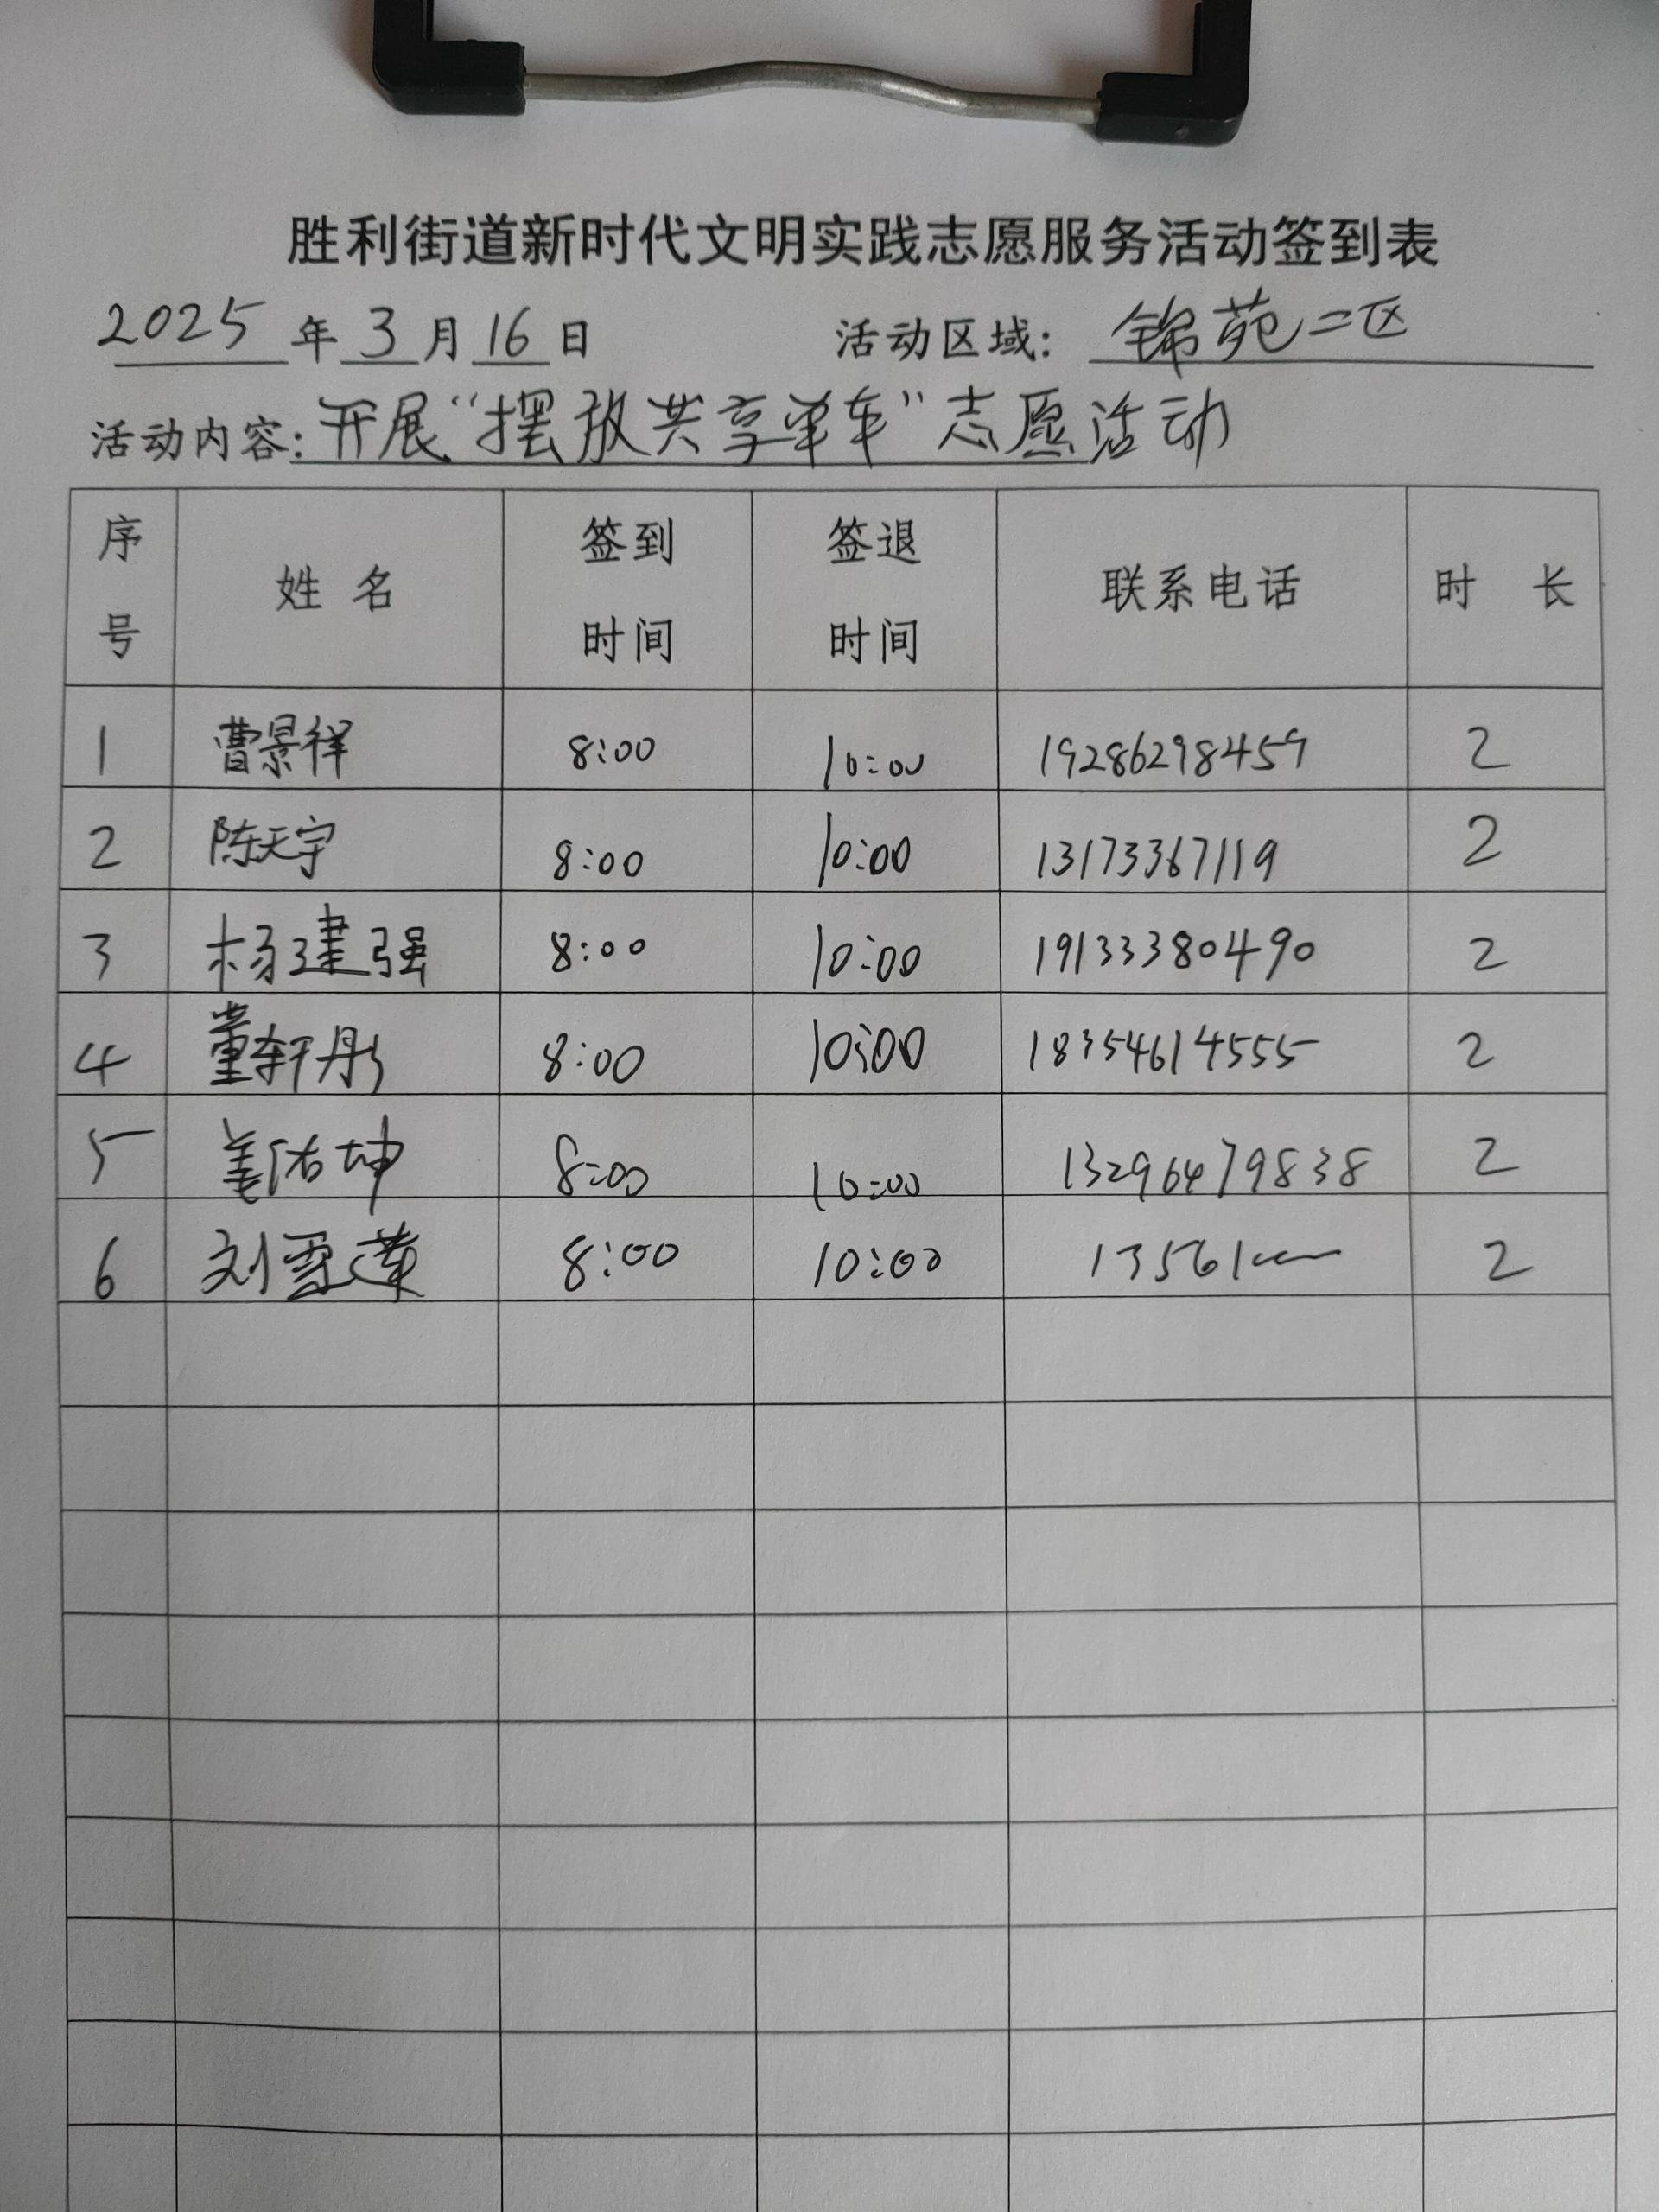 胜利街道新时代文明实践志愿服务活动签到表
2025年3月16日 活动区域：锦苑二区
活动内容：开展“摆放共享单车”志愿活动
序号 姓名 签到时间 签退时间 联系电话 时长
1 曹景祥 8:00 10:00 19286298459 2
2 陈天宇 8:00 10:00 13173367119 2
3 杨建强 8:00 10:00 19133380490 2
4 董轩彤 8:00 10:00 18354614555 2
5 姜佑坤 8:00 10:00 13296479838 2
6 刘雪莲 8:00 10:00 13561 2